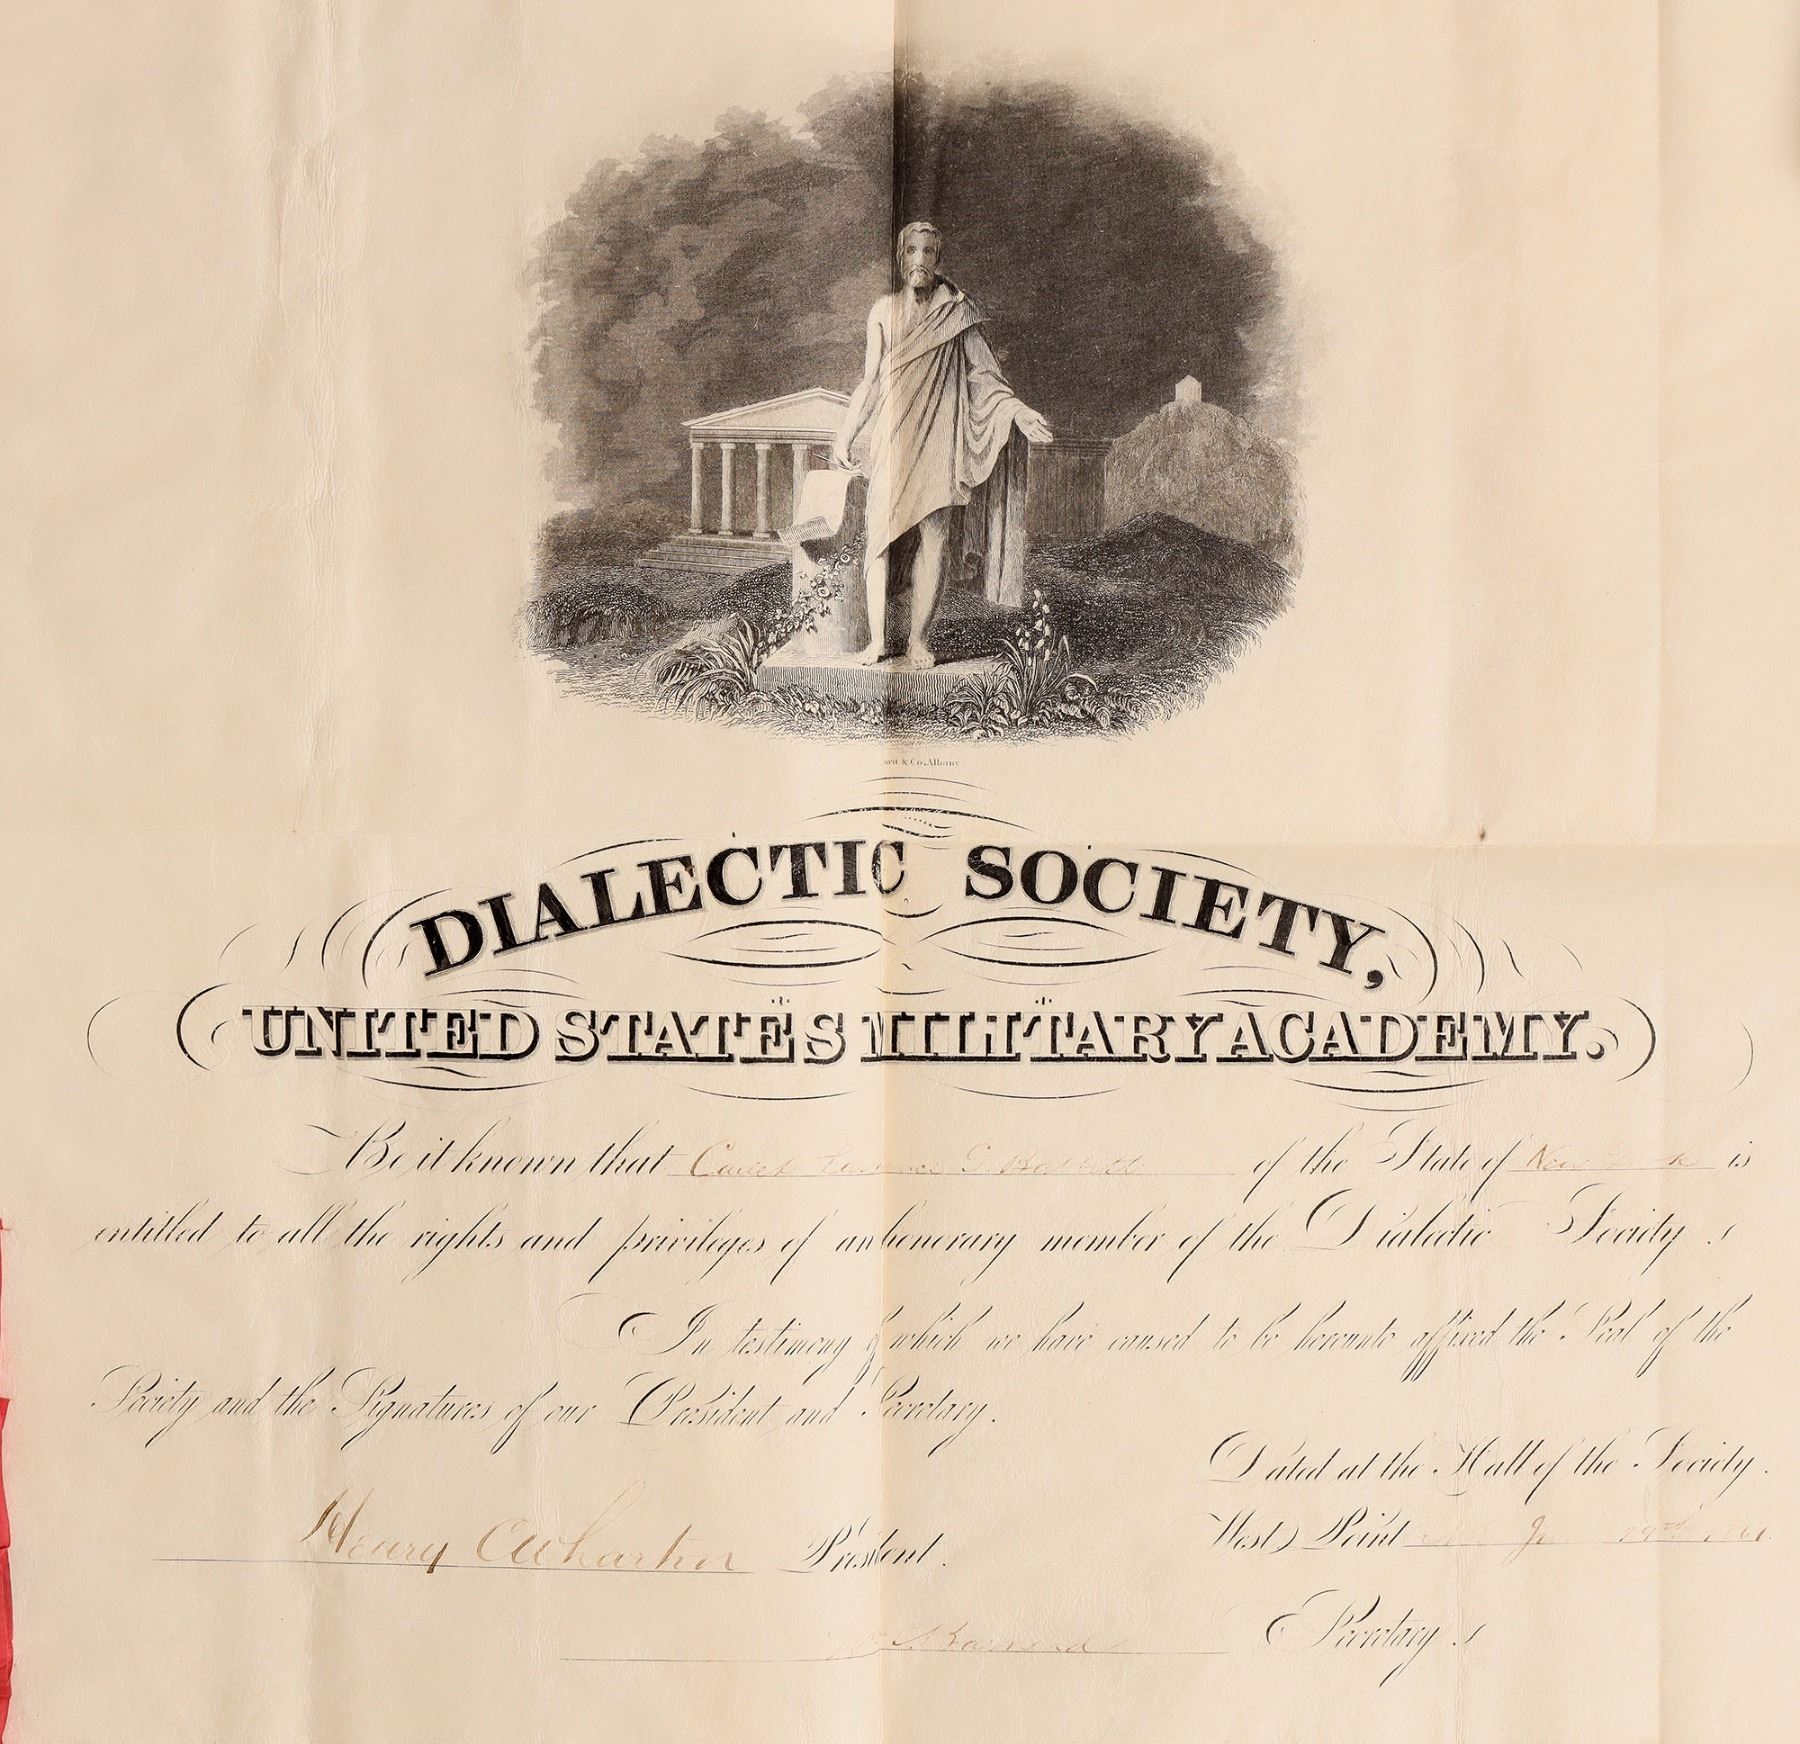 & Co. Albany
DIALECTIC SOCIETY,
UNITED STATES MILITARY ACADEMY.
Be it known that Cadet Lawrence S. Babbitt of the State of New York is
entitled to all the rights and privileges of an honorary member of the Dialectic Society.
In testimony of which we have caused to be hereunto affixed the Seal of the
Society and the Signatures of our President and Secretary.
Dated at the Hall of the Society.
Henry C Wharton President.
West Point
Secretary.